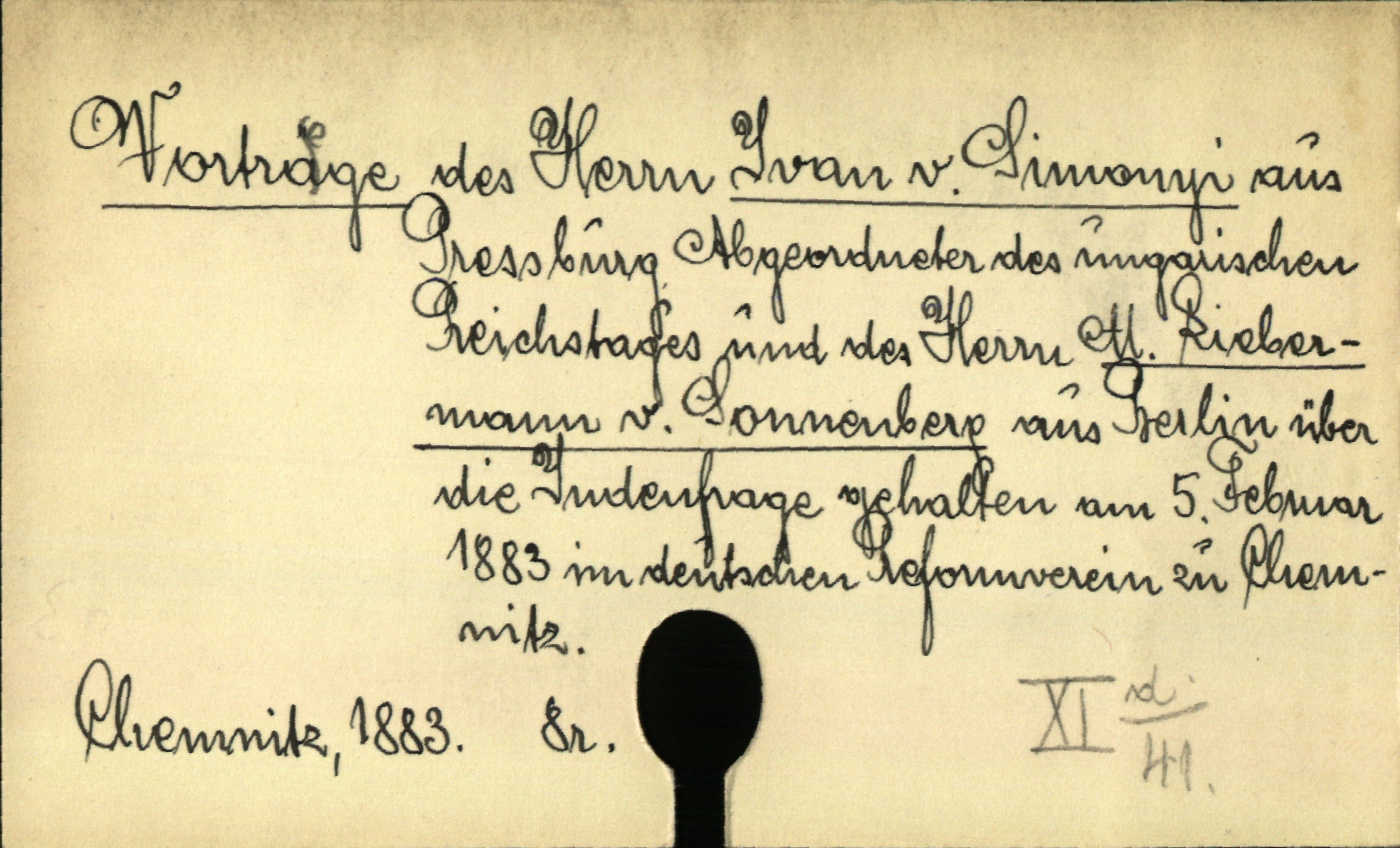 Vorträge des Herrn Ivan v. Simonyi aus
Pressburg Abgeordneter des ungarischen
Reichstages und des Herrn M. Lieber-
mann v. Sonnenberg aus Berlin über
die Judenfrage gehalten am 5. Februar
1883 im deutschen Reformverein zu Chem-
nitz.
Chemnitz, 1883. 8r.
XI d.
41.